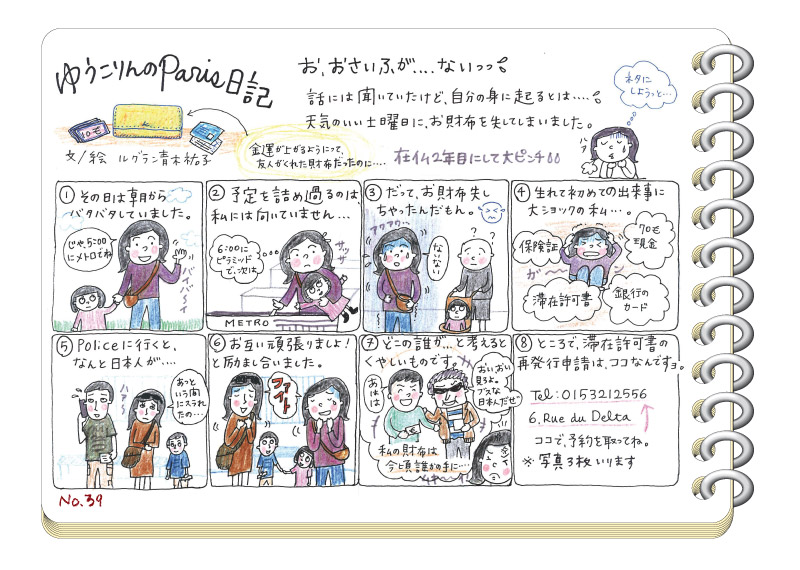 ゆうこりんのParis日記
お、おさいふが....ないっっ!
話には聞いていたけど、自分の身に起るとは....!
天気のいい土曜日に、お財布を失してしまいました。
ネタに
しようっと...
ハァ
10€
文/絵 ルグラン青木祐子
金運が上がるようにって、
友人がくれた財布だったのに....
在仏2年目にして大ピンチ!!
① その日は朝から
バタバタしていました。
じゃ、5:00
にメトロでね
バイバ〜イ
② 予定を詰め過るのは、
私には向いていません...
6:00に
ピラミッド
で、次は
ササッ
METRO
③ だって、お財布失し
ちゃったんだもん。
アワアワ...
ないない
? ?
④ 生れて初めての出来事に
大ショックの私...。
保険証
70€
現金
ガーン
滞在許可書
銀行の
カード
⑤ Policeに行くと、
なんと日本人が....
ハァ〜
あっと
いう間
にスラれ
たの...
⑥ お互い頑張りましよ!
と励まし合いました。
ファイト
⑦ どこの誰が...と考えると
くやしいものです。
あはは
おい、おい
見ろよ。
ブスな
日本人だぜ
私の財布は
今頃誰かの手に...
⑧ ところで、滞在許可書の
再発行申請は、ココなんですョ。
Tel:0153212556
6, Rue du Delta
ココで、予約を取ってね。
※ 写真3枚いります
No.39